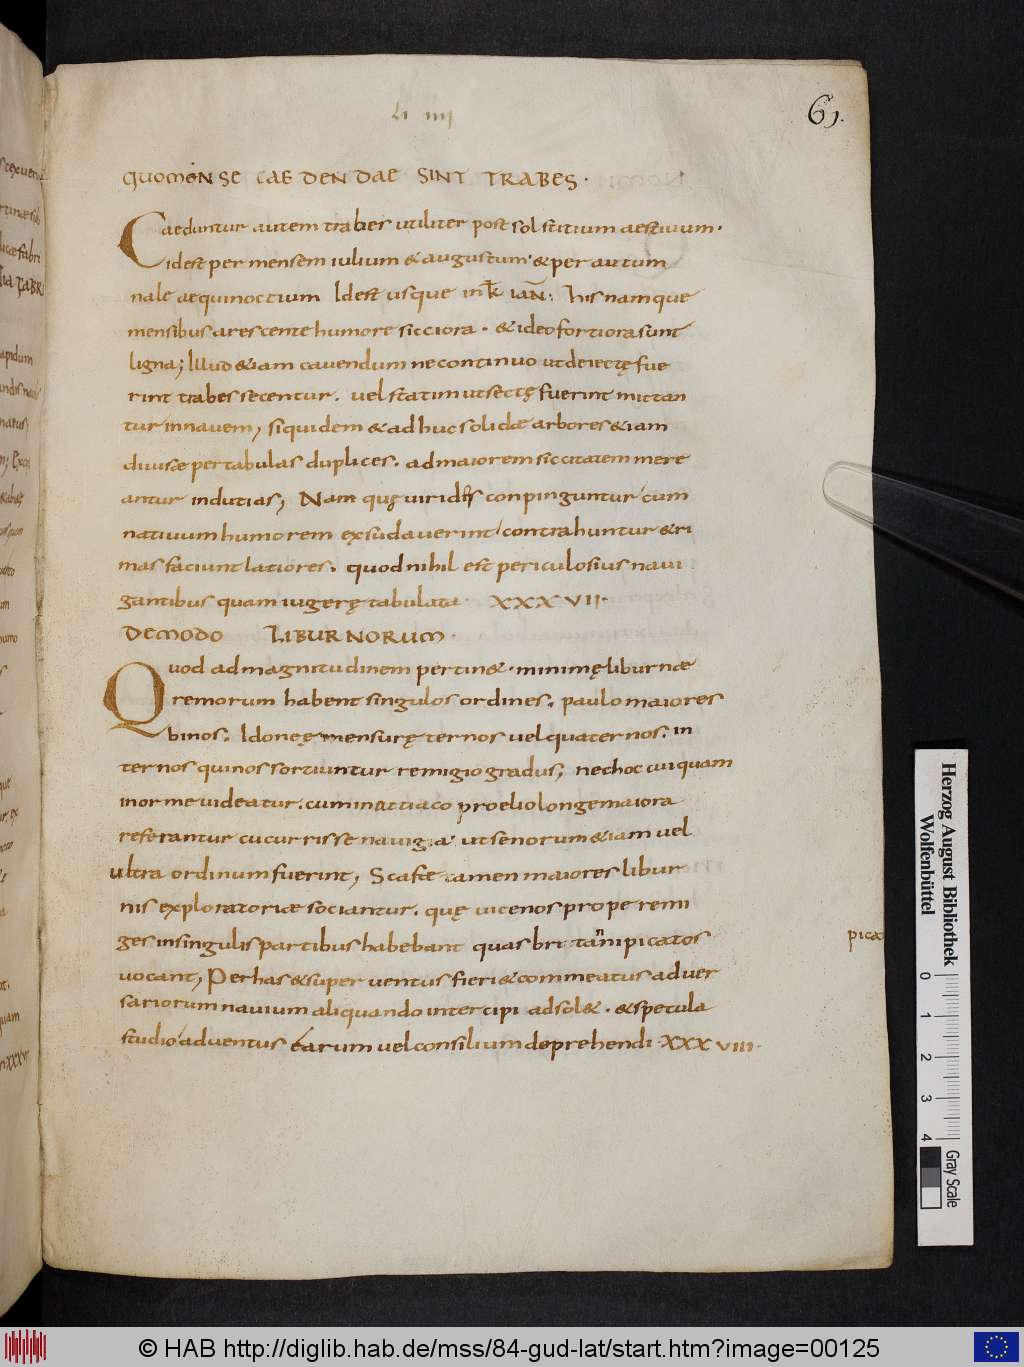 Li IIII
61.
QUOMENSE CAEDENDAE SINT TRABES.
Caeduntur autem trabes utiliter post solstitium aestiuum.
idest per mensem iulium & augustum. & per autum
nale aequinoctium Idest usque in k̅ ian̅. his namque
mensibus arescente humore sicciora. & ideo fortiora sunt
ligna; Illud &iam cauendum ne continuo ut deiectę fue
rint trabes secentur. uel statim ut sectę fuerint mittan
tur in nauem, siquidem & adhuc solidæ arbores &iam
diuisæ per tabulas duplices. ad maiorem siccitatem mere
antur indutias; Nam quę uirides conpinguntur cum
natiuum humorem exsudauerint contrahuntur & ri
mas faciunt latiores. quod nihil est periculosius naui
gantibus quam iugerę tabulata. XXXVII.
DEMODO LIBURNORUM.
Quod ad magnitudinem pertin&. minimę liburnæ
remorum habent singulos ordines. paulo maiores
binos. Idoneę mensurę ternos uel quaternos. in
ternos quinos sortiuntur remigio gradus; nec hoc cuiquam
inorme uideatur. cum in attiaco proelio longe maiora
referantur cucurrisse nauigia ut senorum &iam uel
ultra ordinum fuerint, Scafæ tamen maiores libur
nis exploratoriæ sociantur. quę uicenos prope remi
ges in singulis partibus habebant quas britanni picatos
uocant, Per has & superuentus fieri & commeatus aduer
sariorum nauium aliquando intercipi adsol&. & specula
studio aduentus earum uel consilium deprehendi XXXVIII.
pica
Herzog August Bibliothek
Wolfenbüttel
0 1 2 3 4
Gray Scale
© HAB http://diglib.hab.de/mss/84-gud-lat/start.htm?image=00125